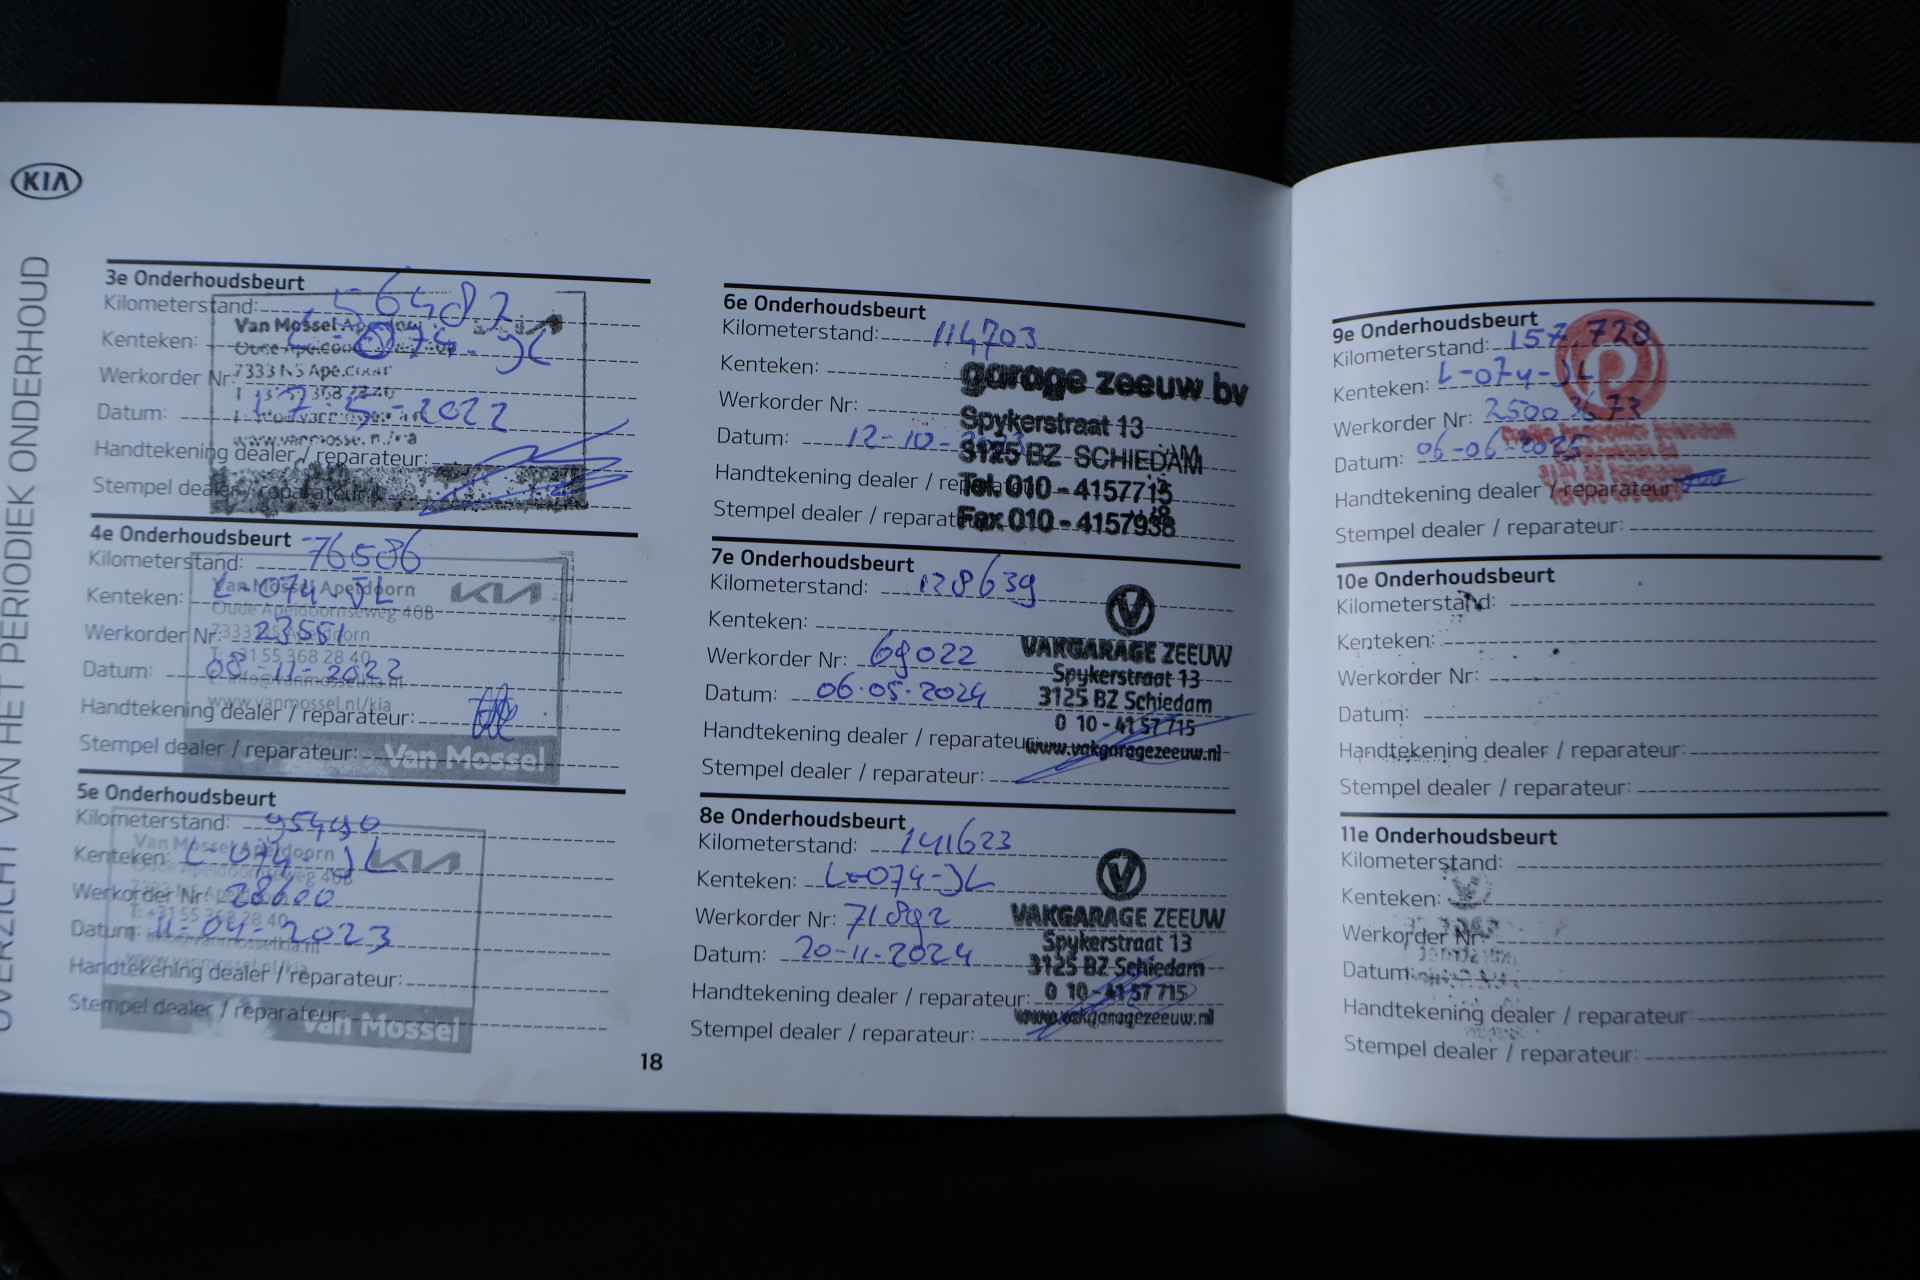 KIA
OVERZICHT VAN HET PERIODIEK ONDERHOUD
3e Onderhoudsbeurt
Kilometerstand: 56482
Van Mossel
Kenteken: L-074-JL
Werkorder Nr:
Datum: 17-5-2022
Handtekening dealer / reparateur:
Stempel dealer / reparateur:
4e Onderhoudsbeurt
Kilometerstand: 76586
Van Mossel Apeldoorn KIA
Kenteken: L-074-JL
Oude Apeldoornseweg 40B
Werkorder Nr: 23551
Datum: 08-11-2022
www.vanmossel.nl/kia
Handtekening dealer / reparateur:
Stempel dealer / reparateur:
Van Mossel
5e Onderhoudsbeurt
Kilometerstand: 95490
Van Mossel Apeldoorn KIA
Kenteken: L-074-JL
Werkorder Nr: 28600
Datum: 11-04-2023
Handtekening dealer / reparateur:
Stempel dealer / reparateur:
Van Mossel
18
6e Onderhoudsbeurt
Kilometerstand: 114703
Kenteken:
garage zeeuw bv
Werkorder Nr:
Spykerstraat 13
Datum: 12-10-2023
3125 BZ SCHIEDAM
Handtekening dealer / reparateur:
Tel. 010 - 4157715
Stempel dealer / reparateur:
Fax 010 - 4157938
7e Onderhoudsbeurt
Kilometerstand: 128639
Kenteken:
V
VAKGARAGE ZEEUW
Werkorder Nr: 69022
Spykerstraat 13
Datum: 06-05-2024
3125 BZ Schiedam
0 10 - 41 57 715
Handtekening dealer / reparateur:
www.vakgaragezeeuw.nl
Stempel dealer / reparateur:
8e Onderhoudsbeurt
Kilometerstand: 141623
Kenteken: L-074-JL
V
Werkorder Nr: 71892
VAKGARAGE ZEEUW
Spykerstraat 13
Datum: 20-11-2024
3125 BZ Schiedam
Handtekening dealer / reparateur:
0 10 - 41 57 715
www.vakgaragezeeuw.nl
Stempel dealer / reparateur:
9e Onderhoudsbeurt
Kilometerstand: 157.728
Kenteken: L-074-JL
Werkorder Nr:
Datum: 06-06-2025
Handtekening dealer / reparateur:
Stempel dealer / reparateur:
10e Onderhoudsbeurt
Kilometerstand:
Kenteken:
Werkorder Nr:
Datum:
Handtekening dealer / reparateur:
Stempel dealer / reparateur:
11e Onderhoudsbeurt
Kilometerstand:
Kenteken:
Werkorder Nr:
Datum:
Handtekening dealer / reparateur:
Stempel dealer / reparateur: